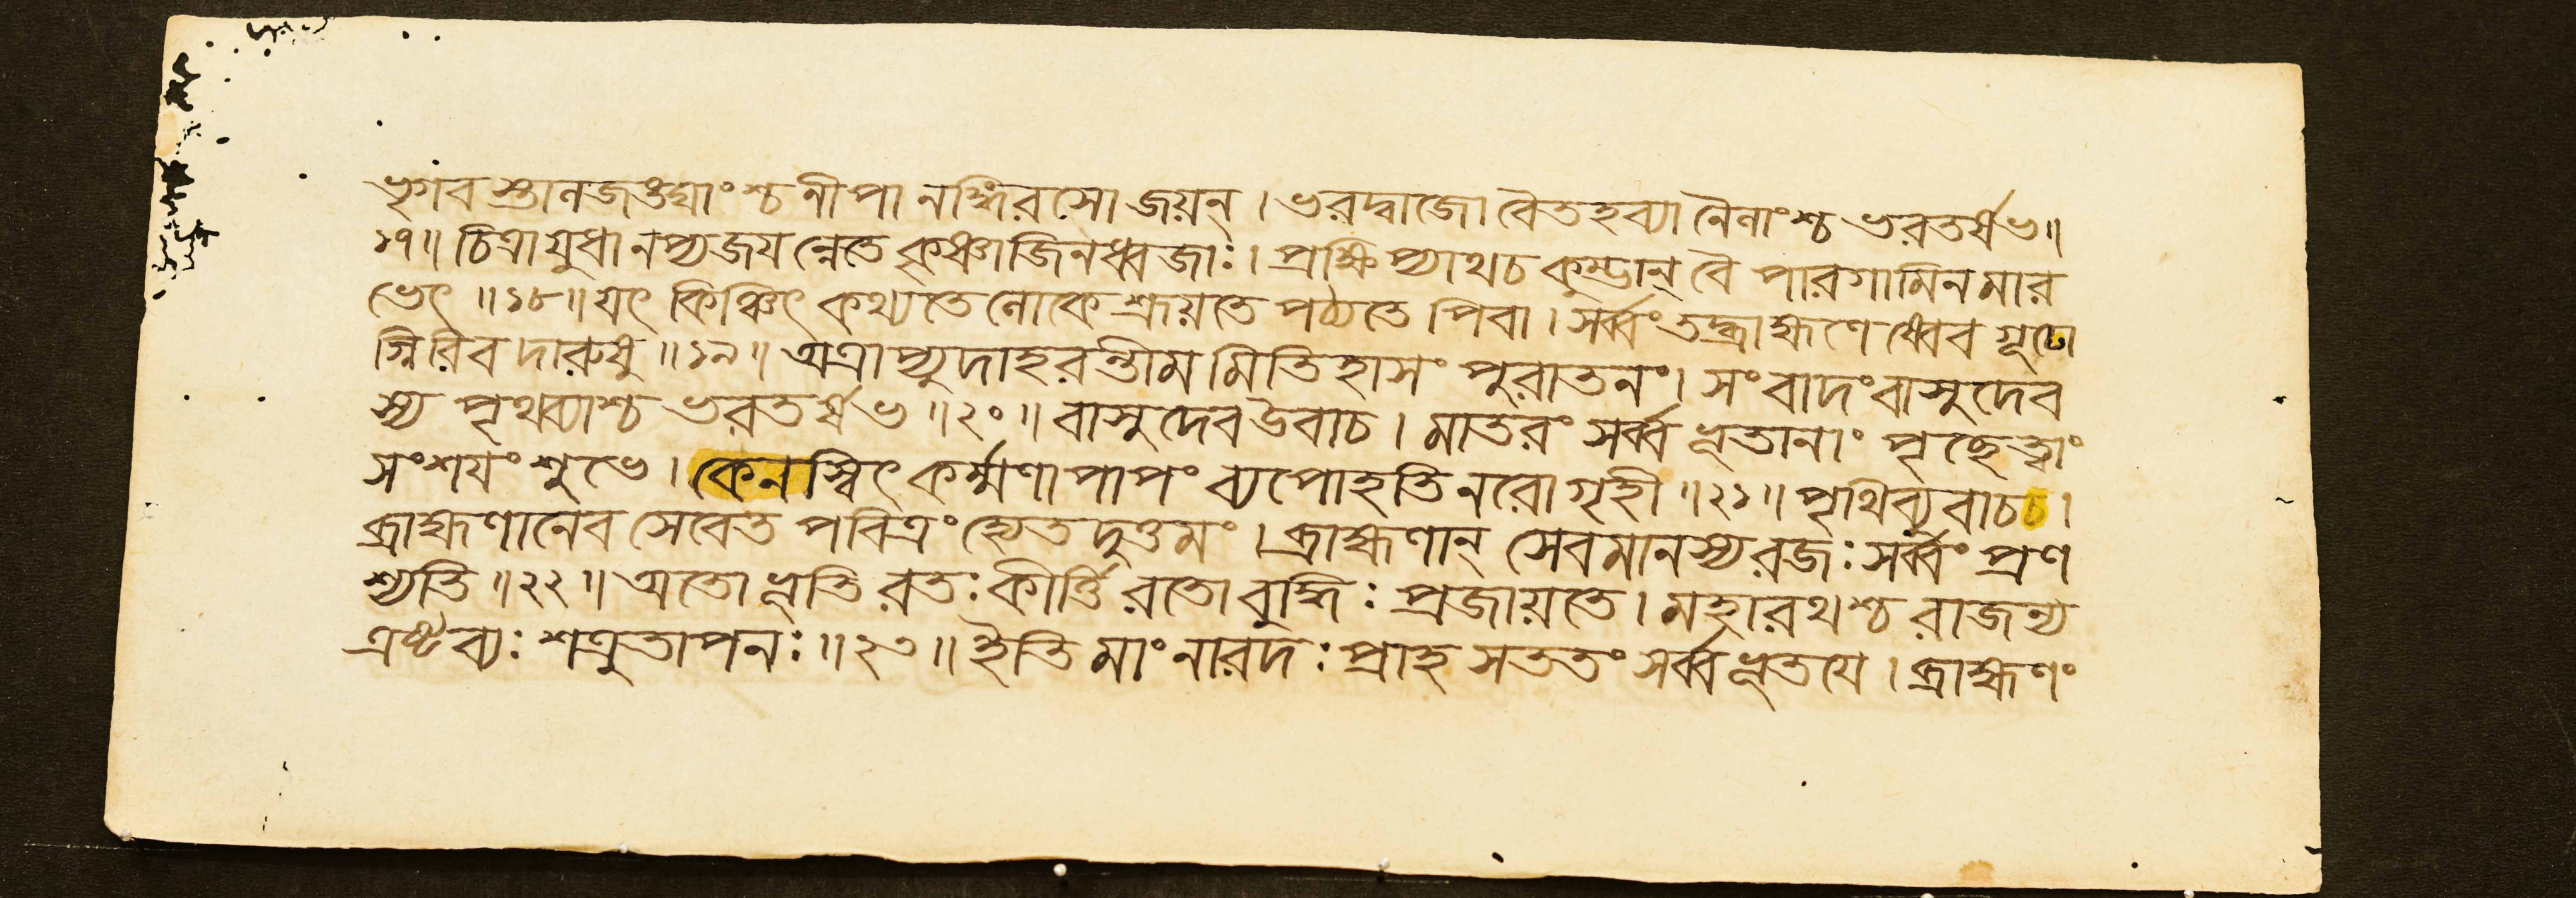 ভৃগবস্তানজঙ্ঘাংশ্চনীপানঙ্গিরসোজয়ন্। ভরদ্বাজোবৈতহব্যানৈনাংশ্চভরতর্ষভ॥
১৭॥ চিত্রাযুধানপ্যজযন্নেতেকৃষ্ণাজিনধ্বজাঃ। প্রক্ষিপ্যাথচকুম্ভান্ বৈ পারগামিনমার
ভেৎ ॥১৮॥ যৎ কিঞ্চিৎ কথ্যতেলোকেশ্রূয়তেপঠ্যতেপিবা। সর্ব্বংতদ্ব্রাহ্মণেষ্বেবগূঢো
গ্নিরিবদারুষু॥১৯॥ অত্রাপ্যুদাহরন্তীমমিতিহাসং পুরাতনং। সংবাদংবাসুদেব
স্য পৃথব্যাশ্চ ভরতর্ষভ॥২০॥ বাসুদেবউবাচ। মাতরং সর্ব্বভূতানাং পৃচ্ছেত্বাং
সংশযংশুভে। কেনস্বিৎকর্ম্মণাপাপং ব্যপোহতিনরোগৃহী॥২১॥ পৃথিব্যুবাচচ।
ব্রাহ্মণানেবসেবেতপবিত্রংহ্যেতদুত্তমং। ব্রাহ্মণান্ সেবমানস্যরজঃসর্ব্বং প্রণ
শ্যতি॥২২॥ অতোভূতিরতঃকীর্ত্তিরতোবুদ্ধিঃ প্রজায়তে। মহারথশ্চরাজন্য
এষ্টব্যঃ শত্রুতাপনঃ॥২৩॥ ইতিমাংনারদঃ প্রাহসততংসর্ব্বভূতযে। ব্রাহ্মণং